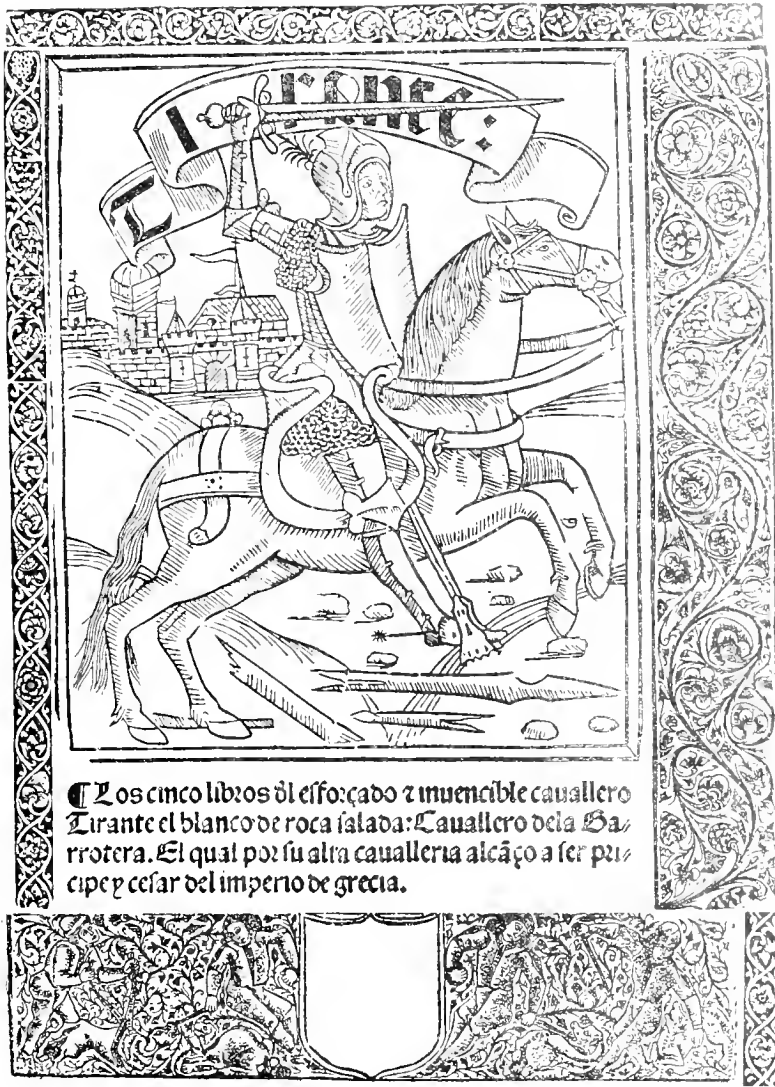 Tirante:
¶ Los cinco libros d̃l esforçado ⁊ inuencible cauallero
Tirante el blanco de roca salada: Cauallero dela Ga/
rrotera. El qual por su alta caualleria alcãço a ser prin/
cipe y cesar del imperio de grecia.